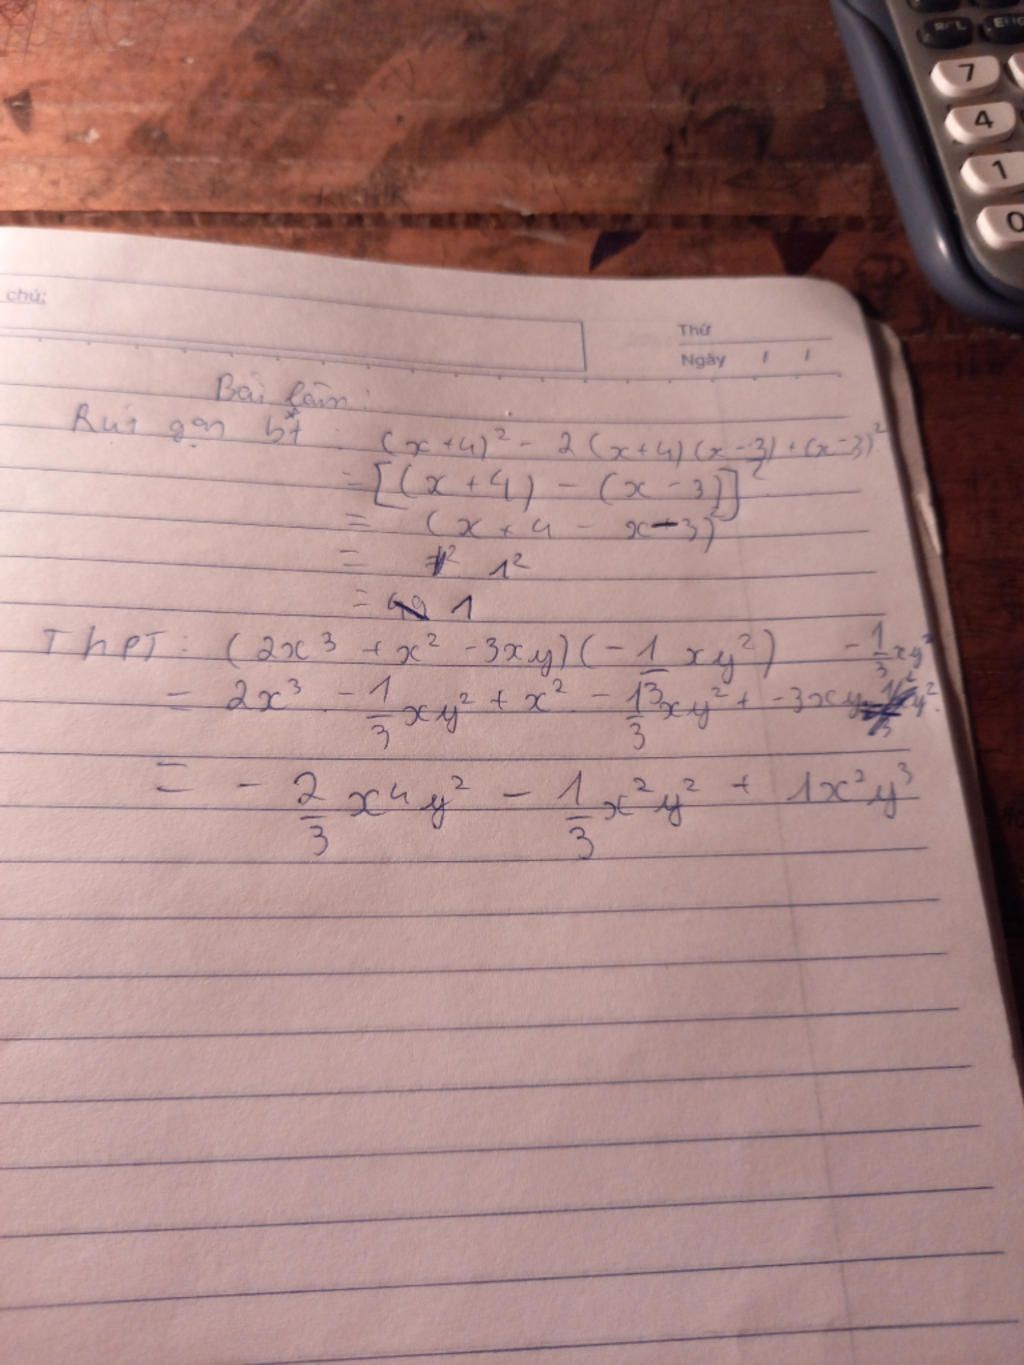 RCL ENG
7
4
1
0
chú:
Thứ
Ngày / /
Bài làm:
Rút gọn bt: (x+4)² - 2(x+4)(x-3)+(x-3)²
= [(x+4) - (x-3)]²
= (x+4 - x-3)²
= 1²
= 1
ThPT: (2x³ + x² - 3xy)(-1/3 xy²) -1/3 xy²
= 2x³ - 1/3 xy² + x² - 1/3 xy² + -3xy
= - 2/3 x⁴y² - 1/3 x²y² + 1x²y³